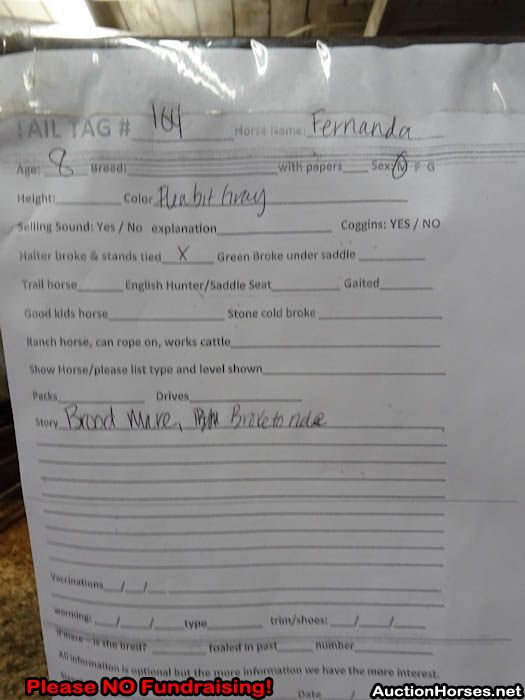 TAIL TAG # 164 Horse Name: Fernanda
Age: 8 Breed: with papers Sex: M F G
Height: Color Fleabit Gray
Selling Sound: Yes / No explanation Coggins: YES / NO
Halter broke & stands tied X Green Broke under saddle
Trail horse English Hunter/Saddle Seat Gaited
Good kids horse Stone cold broke
Ranch horse, can rope on, works cattle
Show Horse/please list type and level shown
Packs Drives
Story Brood Mare, Broke to ride
Vaccinations / /
worming: / / type trim/shoes: / /
If mare – is she bred? foaled in past number
All information is optional but the more information we have the more interest.
Date /
Please NO Fundraising!
AuctionHorses.net